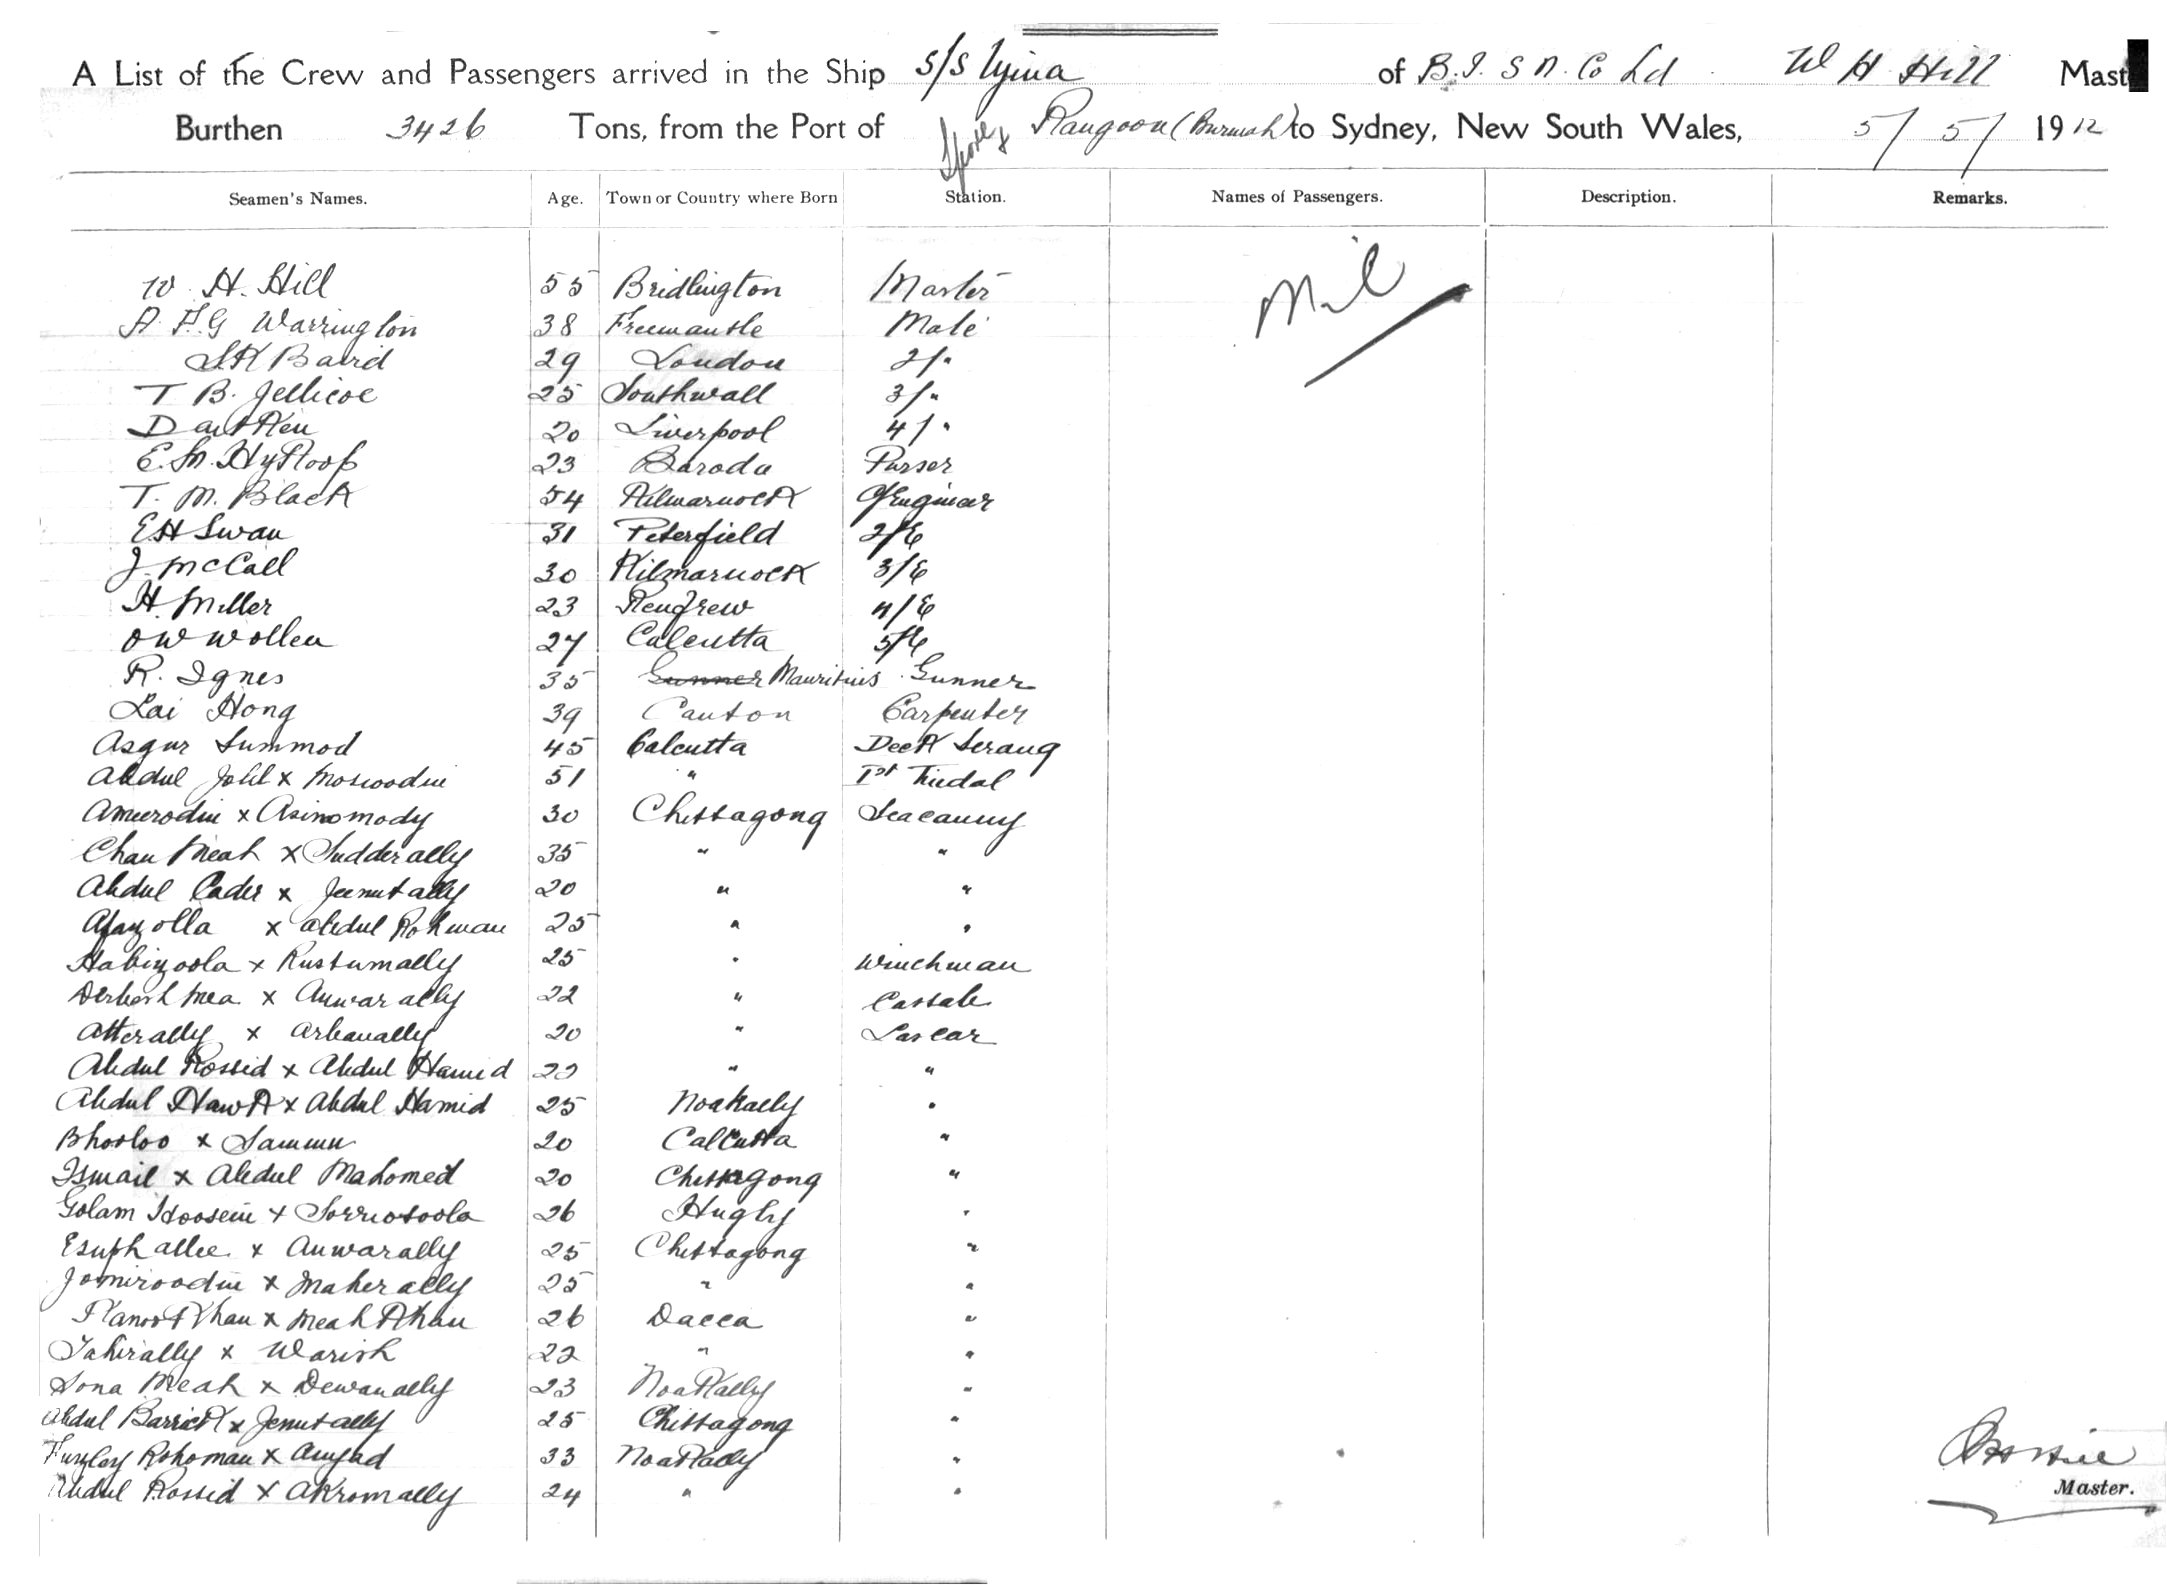 A List of the Crew and Passengers arrived in the Ship S/S Ujina of B.I. S N. Co Ld W H Hill Mast
Burthen 3426 Tons, from the Port of Rangoon (Burmah) to Sydney, New South Wales, 5/5/1912
Seamen's Names. Age. Town or Country where Born Station. Names of Passengers. Description. Remarks.
W. H. Hill 55 Bridlington Master Nil
A. F. G Warrington 38 Freemantle Mate
S.K Baird 29 London 2/"
T B. Jellicoe 25 Southwall 3/"
D 20 Liverpool 4/"
E. M. Hyslop 23 Baroda Purser
T. M. Black 54 Kilmarnock Engineer
E H Swan 31 Petersfield 2/E
J. McCall 30 Kilmarnock 3/E
H. Miller 23 Renfrew 4/E
O W Wollen 27 Calcutta 5/E
R. Ignes 35 Gunner Mauritius Gunner
Lai Hong 39 Canton Carpenter
Asgur Summod 45 Calcutta Deck Serang
Abdul Jolil x Moswoodin 51 " 1st Tindal
Ameerodin x Asinomody 30 Chittagong Seacunny
Chan Meah x Sudderally 35 " "
Abdul Cader x Jeenutally 20 " "
x Abdul Rohman 25 " "
Habizoola x Rustumally 25 " Winchman
Derbesh Mea x Anwarally 22 " Cassab
Atterally x Arbanally 20 " Lascar
Abdul Rossid x Abdul Hamid 22 " "
Abdul Hawk x Abdul Hamid 25 Noakally "
Bhooloo x Sammu 20 Calcutta "
Ismail x Abdul Mahomed 20 Chittagong "
Golam Hoosein x 26 Hugly "
Esuph allee x Anwarally 25 Chittagong "
Jomiroodin x Maherally 25 " "
Khan x Meah Khan 26 Dacca "
Tahirally x Warish 22 " "
Sona Meah x Dewanally 23 Noakally "
Abdul Barrick x Jenutally 25 Chittagong "
Furzley Rohoman x Amjad 33 Noakally "
Abdul Rossid x Akromally 24 " "
W H Hill
Master.